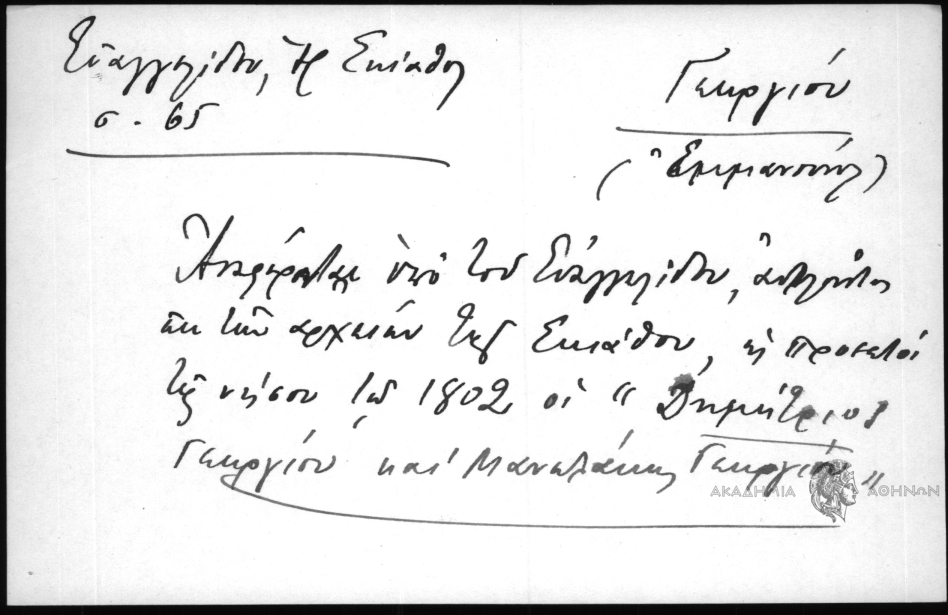 Εὐαγγελίδου, Ἡ Σκίαθος
σ. 65
Γεωργίου
(Ἐμμανουήλ)
Ἀναφέρεται ὑπό τοῦ Εὐαγγελίδου, ἀντλοῦντος
ἐκ τῶν ἀρχείων τῆς Σκιάθου, ὡς προεστοί
τῆς νήσου τῷ 1802 οἱ "Δημήτριος
Γεωργίου καί Μανωλάκης Γεωργίου"
ΑΚΑΔΗΜΙΑ ΑΘΗΝΩΝ